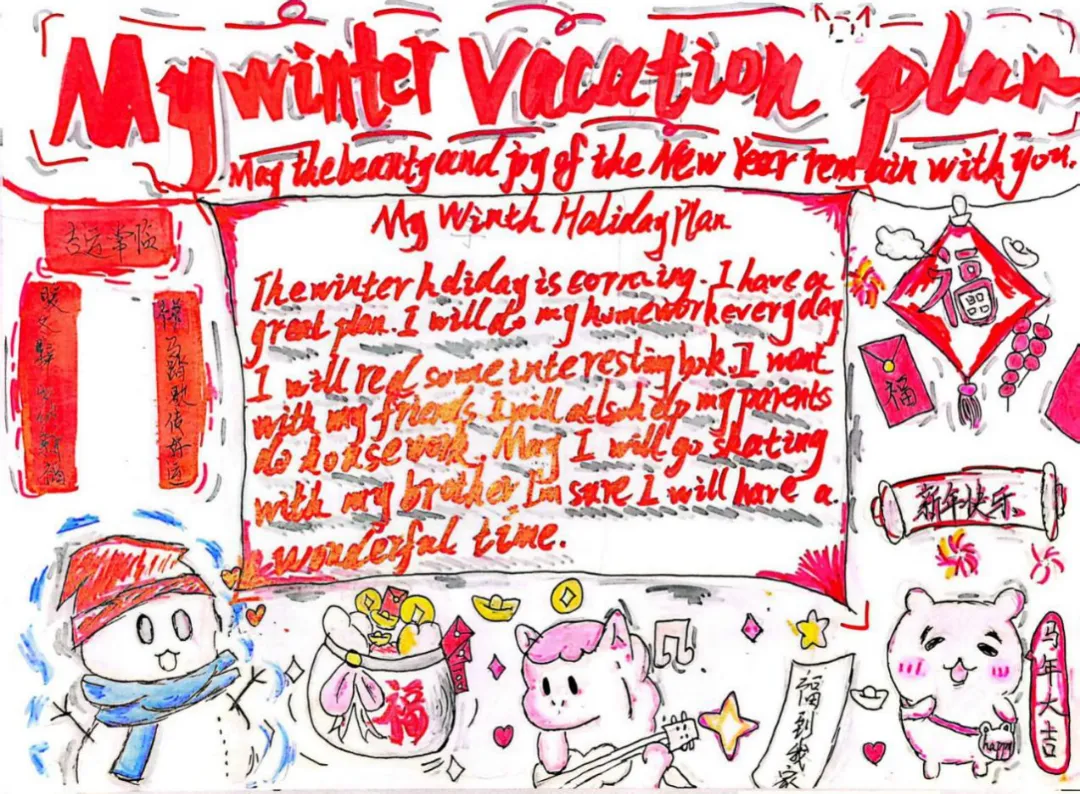 My winter vacation plan
May the beauty and joy of the New Year remain with you.
My Winth Haliday Plan
The winter holiday is comming. I have a
great plan. I will do my homework every day
I will red some interesting book. I want
with my friends. I will also help my parents
do house work. May I will go skating
with my brother I'm sure I will have a
wonderful time.
吉运常临
马踏歌传好运
福
福
新年快乐
福
福到我家
马年大吉
happy